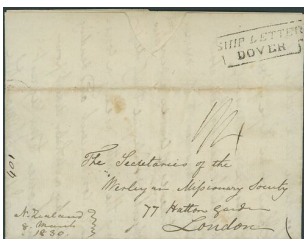 SHIP LETTER
DOVER
The Secretaries of the
Wesleyan Missionary Society
77 Hatton Garden
London
N. Zealand
8 March
1830